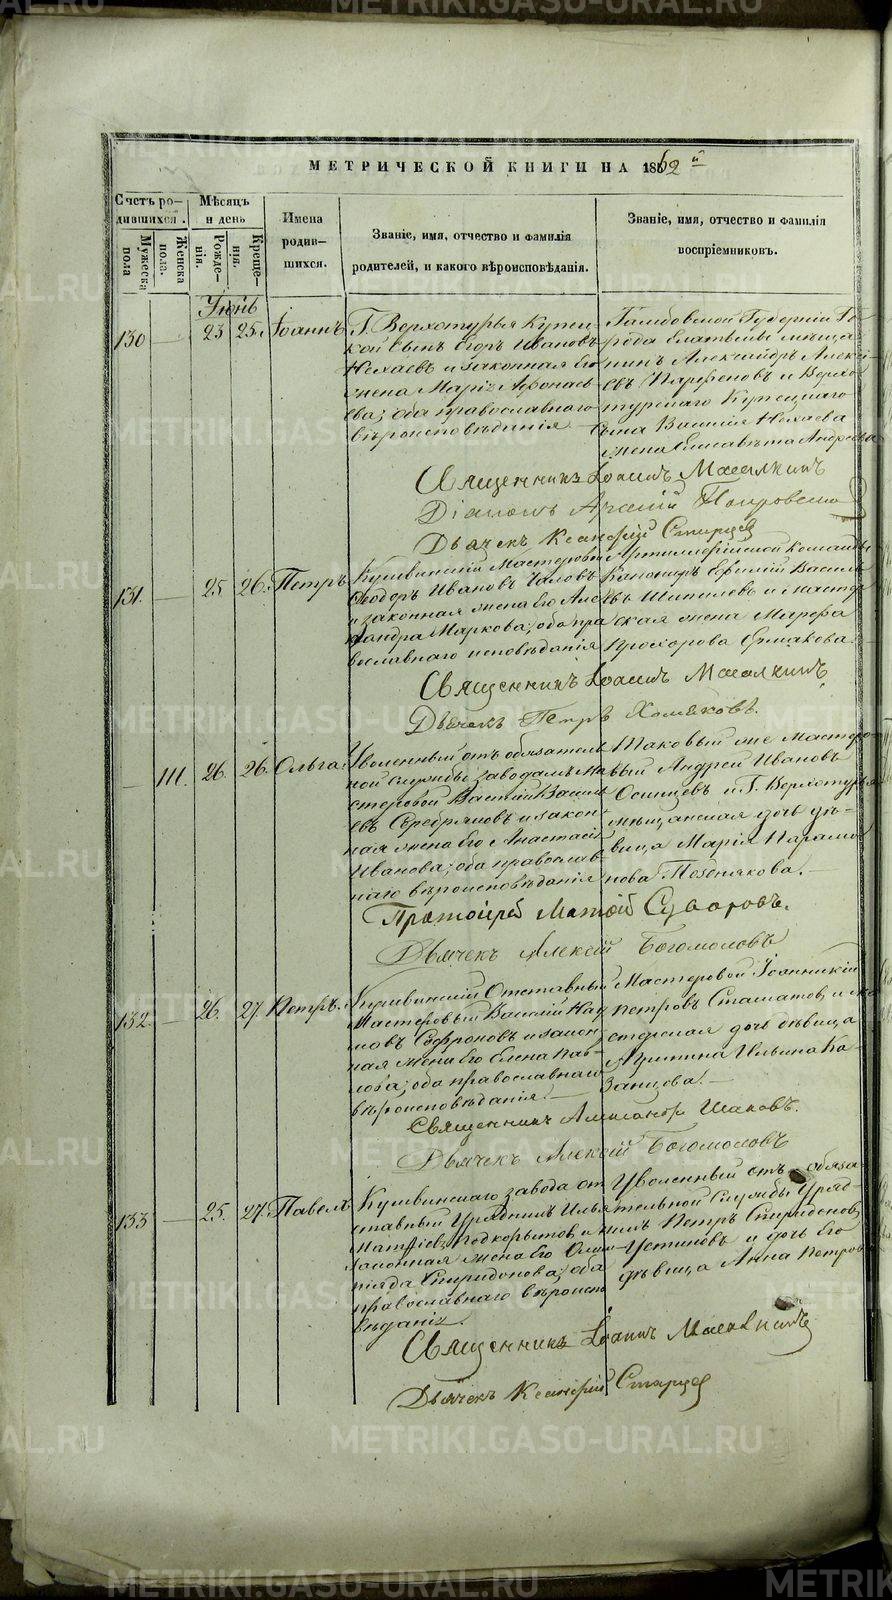 МЕТРИЧЕСКОЙ КНИГИ НА 1862й
Счетъ ро-
дившихся.
Мужеска
пола
Женска
пола.
Мѣсяцъ
и день
Рожде-
нія.
Креще-
нія.
Имена
родив-
шихся.
Званіе, имя, отчество и фамилія
родителей, и какого вѣроисповѣданія.
Званіе, имя, отчество и фамилія
воспріемниковъ.
Іюнь
130 — 23 25. Іоаннъ
Г. Верхотурья Купец-
кой сынъ Егоръ Ивановъ
Нехаевъ и законная его
жена Марія Афонась-
ева; оба православнаго
вѣроисповѣданія —
Тамбовской Губерніи Го-
рода Елатьмы мѣща-
нинъ Александръ Алексѣ-
евъ Парфеновъ и Верхо-
турскаго Купецкаго
сына Василія Нехаева
жена Елисавета Андреева
Священникъ Іоаннъ
Діаконъ
Дьячекъ Старцев
131. — 25 26. Петръ
Кушвинскій Мастеровый
Ѳеодоръ Ивановъ
и законная жена его Алек-
сандра Маркова; оба пра-
вославнаго исповѣданія
Артиллерійской команды
Канониръ Ефимій Василь-
евъ и мастер-
ская жена Марфа
Прохорова Ермакова.
Священникъ Іоаннъ
Дьячекъ Петръ Хомяковъ.
— 111. 26. 26. Ольга.
Уволенный отъ обязатель-
ной службы заводамъ Ма-
стеровой Василій Василь-
евъ Серебряковъ и закон-
ная жена его Анастасія
Иванова; оба православ-
наго вѣроисповѣданія
Таковый же Мастеро-
вый Андрей Ивановъ
Осинцевъ и Г. Верхотурья
мѣщанская дочь дѣ-
вица Марія Парамо-
нова Позднякова. —
Протоіерей Матѳій Суворовъ.
Дьячекъ Алексій Богомоловъ
132. — 26. 27. Петръ.
Кушвинскій Отставный
Мастеровый Василій Нау-
мовъ Сафроновъ и закон-
ная жена его Елена Пав-
лова; оба православнаго
вѣроисповѣданія. —
Мастеровой Іоанникій
Петровъ Стаматов и ма-
стерская дочь дѣвица
Ильина Ка-
занцова. —
Священникъ Александръ
Дьячекъ Алексій Богомоловъ
133 — 25. 27. Павелъ
Кушвинскаго завода от-
ставный Урядникъ Илья
Матфіевъ Подкорытовъ и
законная жена его Олим-
піяда Спиридонова; оба
православнаго вѣроиспо-
вѣданія.
Уволенный отъ обяза-
тельной службы Уряд-
никъ Петръ Спиридоновъ
Устиновъ и дочь его
дѣвица Анна Петрова
Священникъ Іоаннъ
Дьячекъ Старцев
METRIKI.GASO-URAL.RU